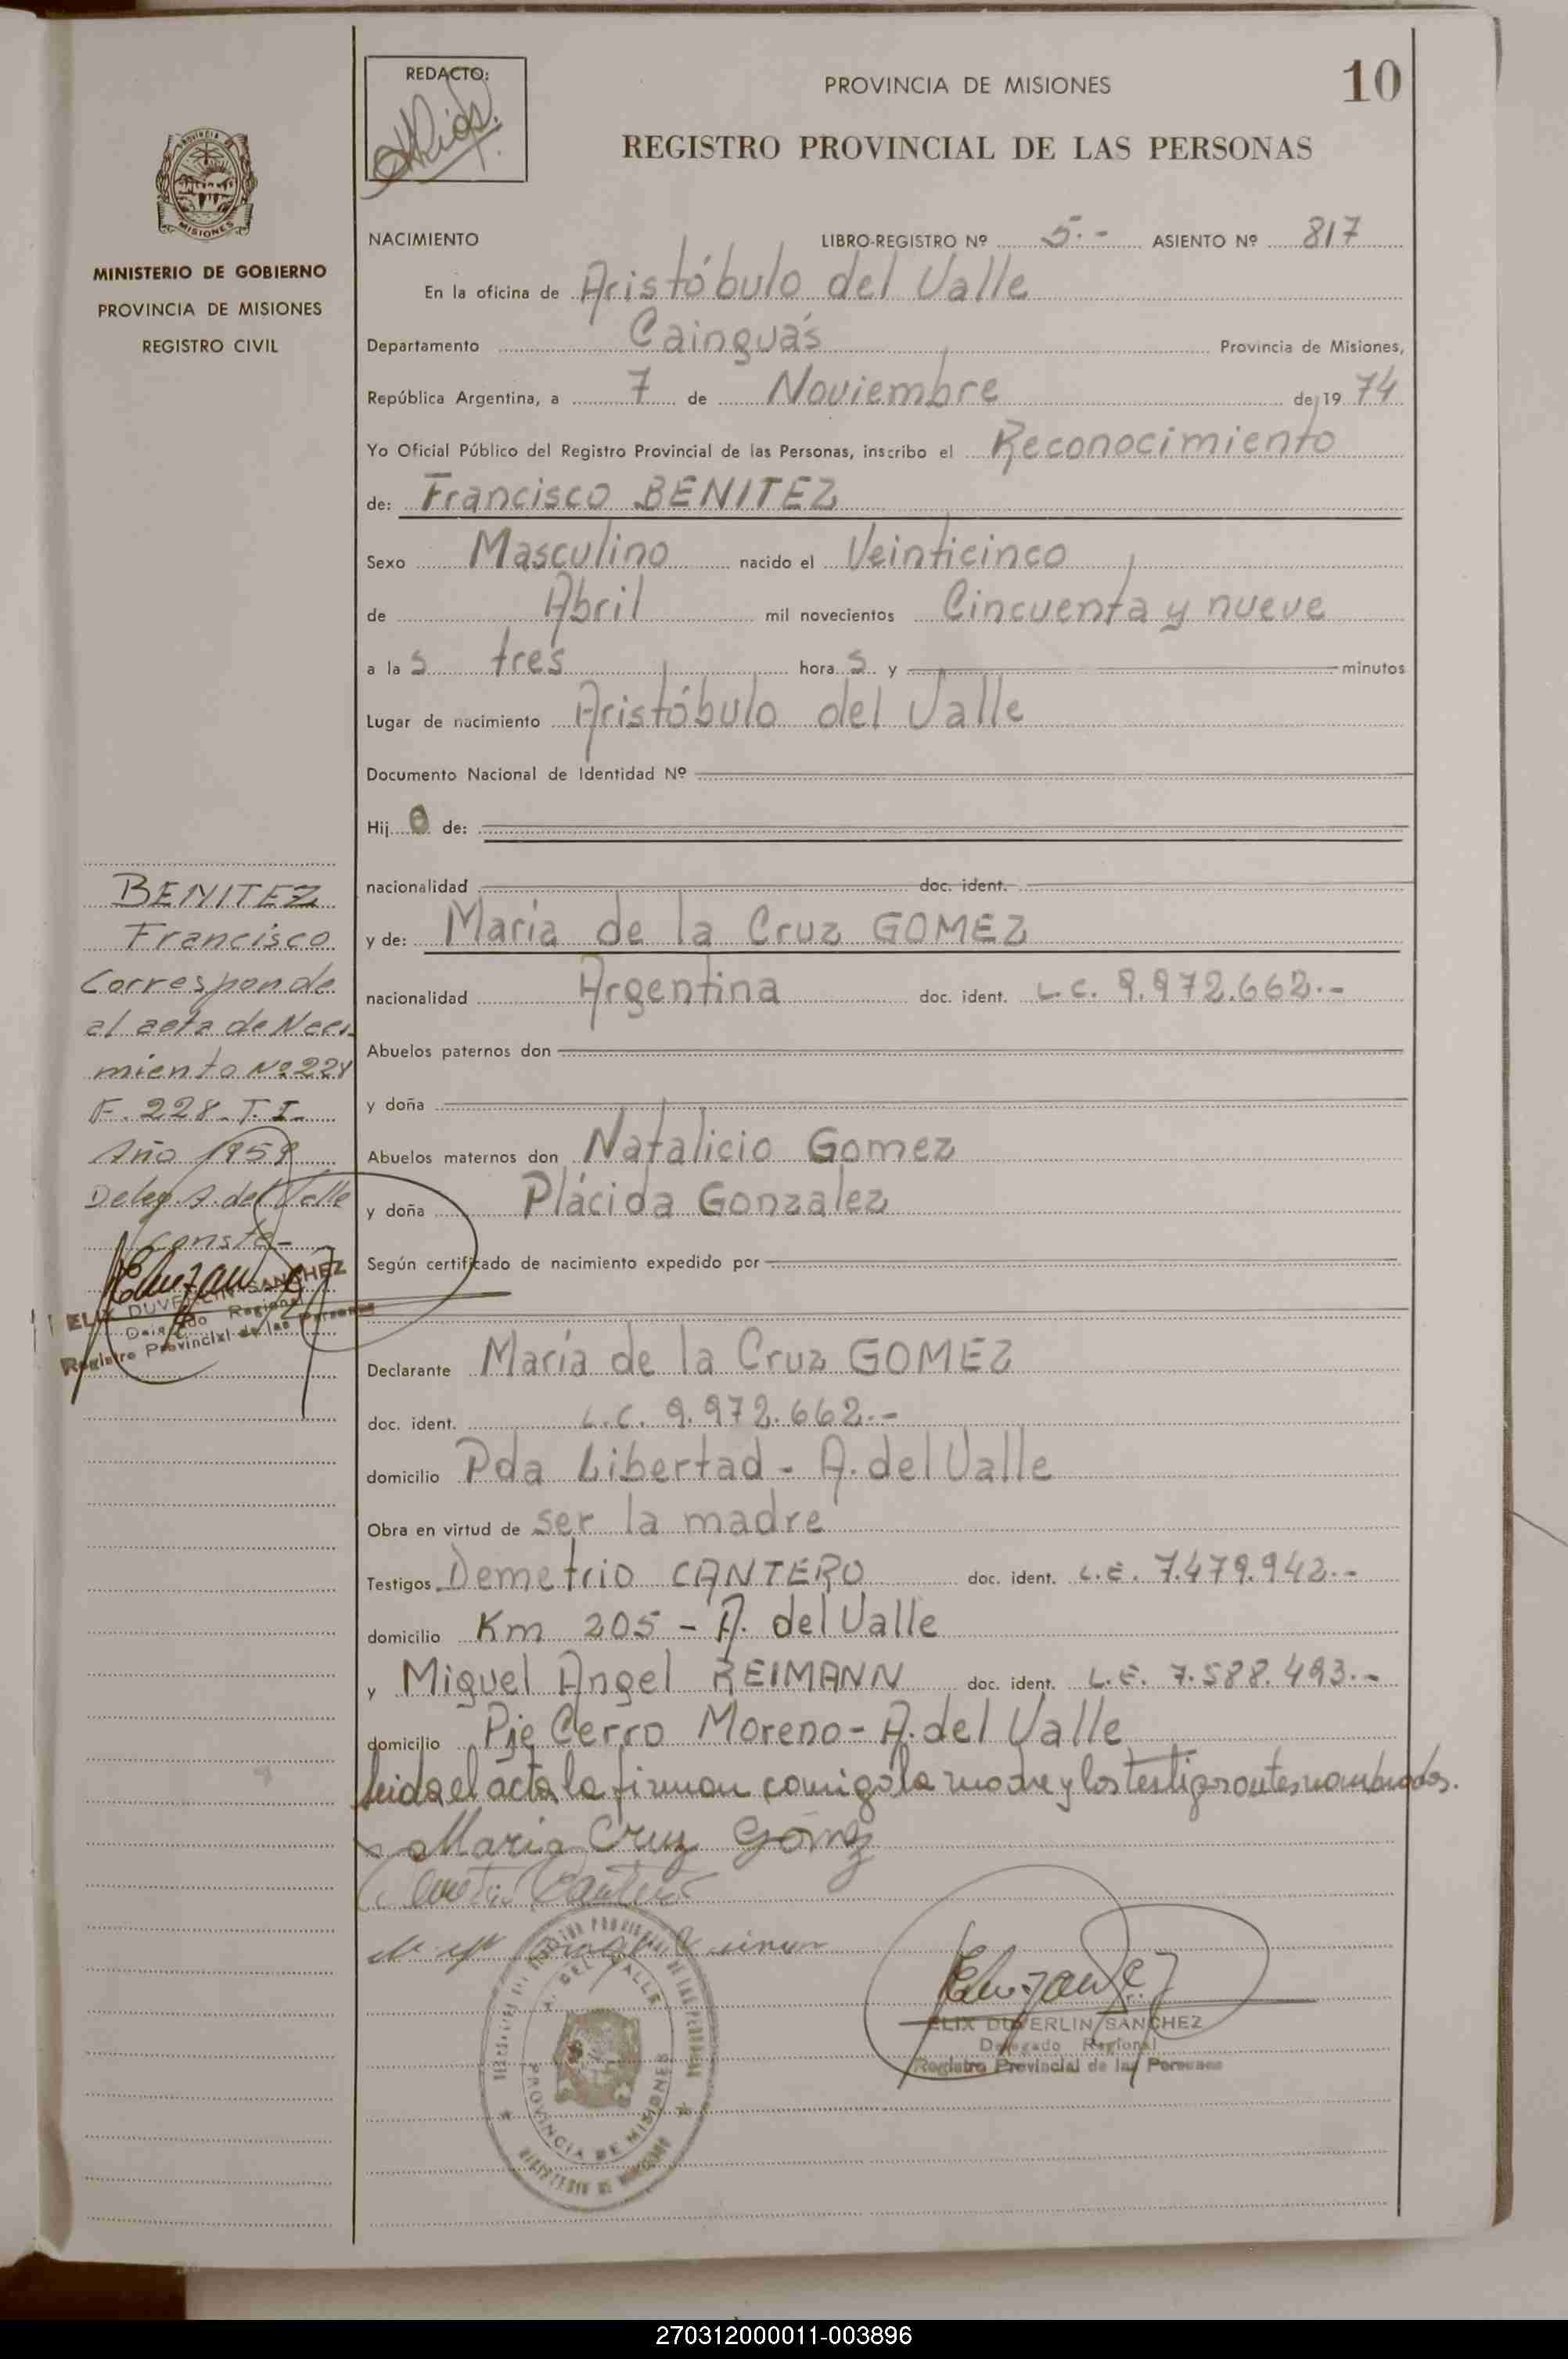 REDACTO:
PROVINCIA DE MISIONES
10
REGISTRO PROVINCIAL DE LAS PERSONAS
PROVINCIA
MISIONES
MINISTERIO DE GOBIERNO
PROVINCIA DE MISIONES
REGISTRO CIVIL
NACIMIENTO LIBRO-REGISTRO Nº 5.- ASIENTO Nº 817
En la oficina de Aristóbulo del Valle
Departamento Cainguás Provincia de Misiones,
República Argentina, a 7 de Noviembre de 19 74
Yo Oficial Público del Registro Provincial de las Personas, inscribo el Reconocimiento
de: Francisco BENITEZ
Sexo Masculino nacido el Veinticinco
de Abril mil novecientos Cincuenta y nueve
a la s tres hora s y minutos
Lugar de nacimiento Aristóbulo del Valle
Documento Nacional de Identidad Nº
Hij o de:
nacionalidad doc. ident.
y de: María de la Cruz GOMEZ
nacionalidad Argentina doc. ident. L.C. 9.972.662.-
Abuelos paternos don
y doña
Abuelos maternos don Natalicio Gomez
y doña Plácida Gonzalez
Según certificado de nacimiento expedido por
Declarante María de la Cruz GOMEZ
doc. ident. L.C. 9.972.662.-
domicilio Pda Libertad - A. del Valle
Obra en virtud de ser la madre
Testigos Demetrio CANTERO doc. ident. L.E. 7.479.942.-
domicilio Km 205 - A. del Valle
y Miguel Angel REIMANN doc. ident. L.E. 7.588.493.-
domicilio Pje Cerro Moreno - A. del Valle
Leida el acta la firman comigo la madre y los testigos antes nombrados.
Maria Cruz Gómez
BENITEZ
Francisco
Corresponde
al acta de Naci
miento Nº 224
F. 228 - T. I
Año 1959
Deleg. A. del Valle
Conste-
ELIX DUVERLIN SANCHEZ
Delegado Regional
Registro Provincial de las Personas
A. DEL VALLE
PROVINCIA DE MISIONES
ELIX DUVERLIN SANCHEZ
Delegado Regional
Registro Provincial de las Personas
270312000011-003896